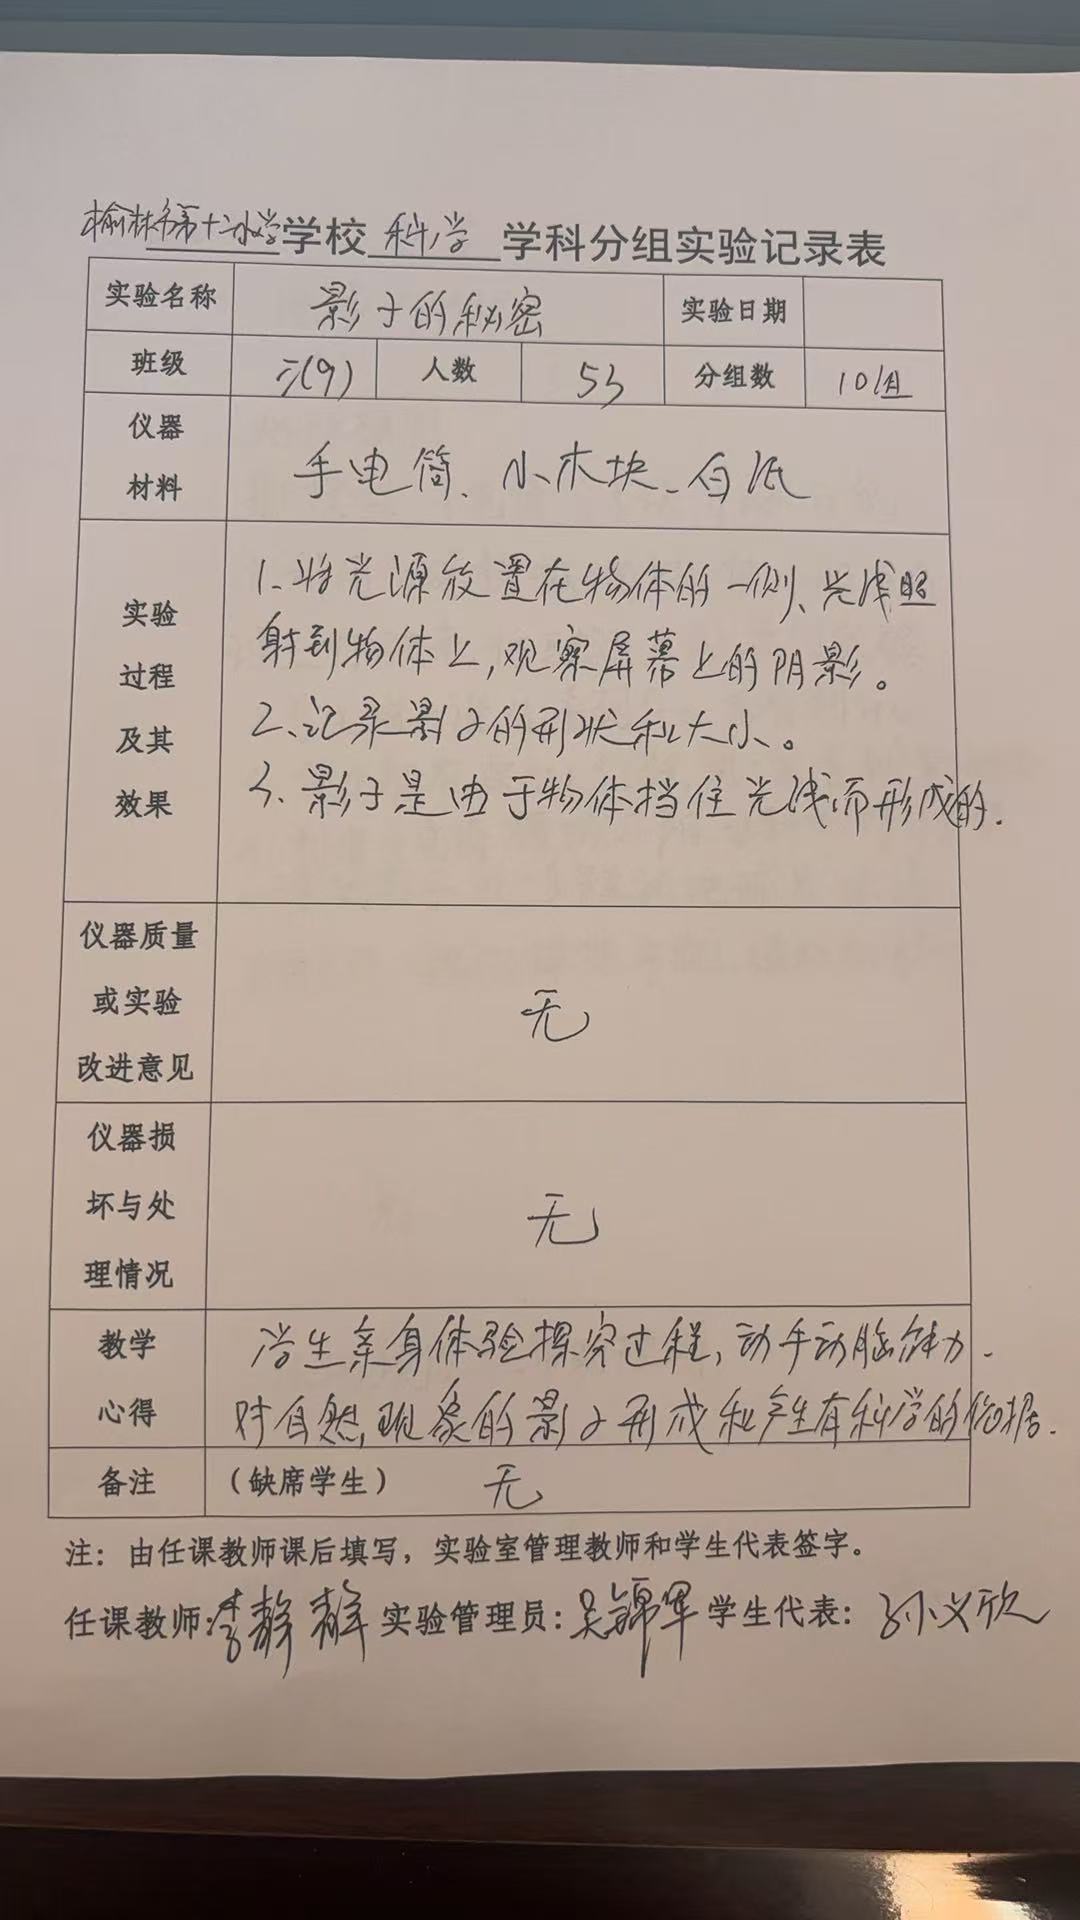 榆林市第十二小学学校 科学 学科分组实验记录表
实验名称 影子的秘密 实验日期
班级 三(9) 人数 53 分组数 10组
仪器
材料
手电筒、小木块、白纸
实验
过程
及其
效果
1、将光源放置在物体的一侧、光线照
射到物体上,观察屏幕上的阴影。
2、记录影子的形状和大小。
3、影子是由于物体挡住光线而形成的.
仪器质量
或实验
改进意见
无
仪器损
坏与处
理情况
无
教学
心得
学生亲身体验探究过程,动手动脑能力.
对自然现象的影子形成和产生有科学的依据.
备注 (缺席学生) 无
注:由任课教师课后填写,实验室管理教师和学生代表签字。
任课教师:李静静 实验管理员:吴锦军 学生代表:孙义欣